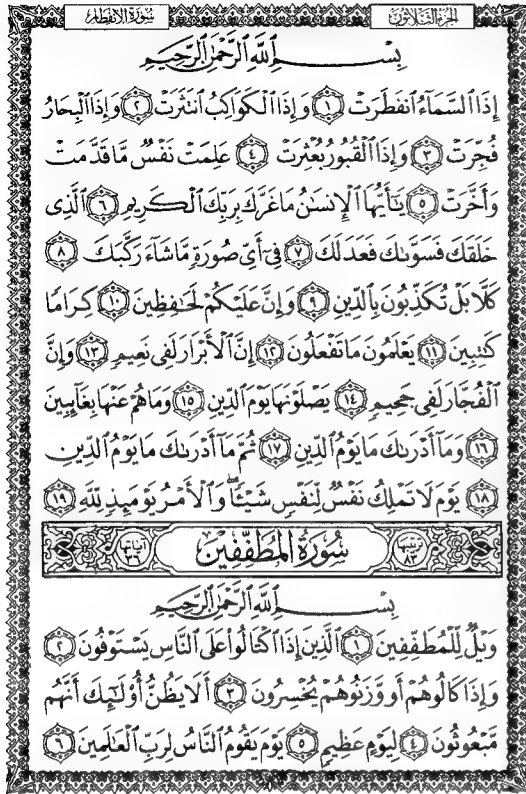 الجزء الثلاثون
سورة الانفطار
بِسْمِ اللَّهِ الرَّحْمَٰنِ الرَّحِيمِ
إِذَا ٱلسَّمَآءُ ٱنفَطَرَتْ ١ وَإِذَا ٱلْكَوَاكِبُ ٱنتَثَرَتْ ٢ وَإِذَا ٱلْبِحَارُ
فُجِّرَتْ ٣ وَإِذَا ٱلْقُبُورُ بُعْثِرَتْ ٤ عَلِمَتْ نَفْسٌ مَّا قَدَّمَتْ
وَأَخَّرَتْ ٥ يَٰٓأَيُّهَا ٱلْإِنسَٰنُ مَا غَرَّكَ بِرَبِّكَ ٱلْكَرِيمِ ٦ ٱلَّذِى
خَلَقَكَ فَسَوَّىٰكَ فَعَدَلَكَ ٧ فِىٓ أَىِّ صُورَةٍ مَّا شَآءَ رَكَّبَكَ ٨
كَلَّا بَلْ تُكَذِّبُونَ بِٱلدِّينِ ٩ وَإِنَّ عَلَيْكُمْ لَحَٰفِظِينَ ١٠ كِرَامًا
كَٰتِبِينَ ١١ يَعْلَمُونَ مَا تَفْعَلُونَ ١٢ إِنَّ ٱلْأَبْرَارَ لَفِى نَعِيمٍ ١٣ وَإِنَّ
ٱلْفُجَّارَ لَفِى جَحِيمٍ ١٤ يَصْلَوْنَهَا يَوْمَ ٱلدِّينِ ١٥ وَمَا هُمْ عَنْهَا بِغَآئِبِينَ
١٦ وَمَآ أَدْرَىٰكَ مَا يَوْمُ ٱلدِّينِ ١٧ ثُمَّ مَآ أَدْرَىٰكَ مَا يَوْمُ ٱلدِّينِ
١٨ يَوْمَ لَا تَمْلِكُ نَفْسٌ لِّنَفْسٍ شَيْـًٔا ۖ وَٱلْأَمْرُ يَوْمَئِذٍ لِّلَّهِ ١٩
ترتيبها ٨٣ سُورَةُ الْمُطَفِّفِينَ آياتها ٣٦
بِسْمِ اللَّهِ الرَّحْمَٰنِ الرَّحِيمِ
وَيْلٌ لِّلْمُطَفِّفِينَ ١ ٱلَّذِينَ إِذَا ٱكْتَالُوا۟ عَلَى ٱلنَّاسِ يَسْتَوْفُونَ ٢
وَإِذَا كَالُوهُمْ أَو وَّزَنُوهُمْ يُخْسِرُونَ ٣ أَلَا يَظُنُّ أُو۟لَٰٓئِكَ أَنَّهُم
مَّبْعُوثُونَ ٤ لِيَوْمٍ عَظِيمٍ ٥ يَوْمَ يَقُومُ ٱلنَّاسُ لِرَبِّ ٱلْعَٰلَمِينَ ٦